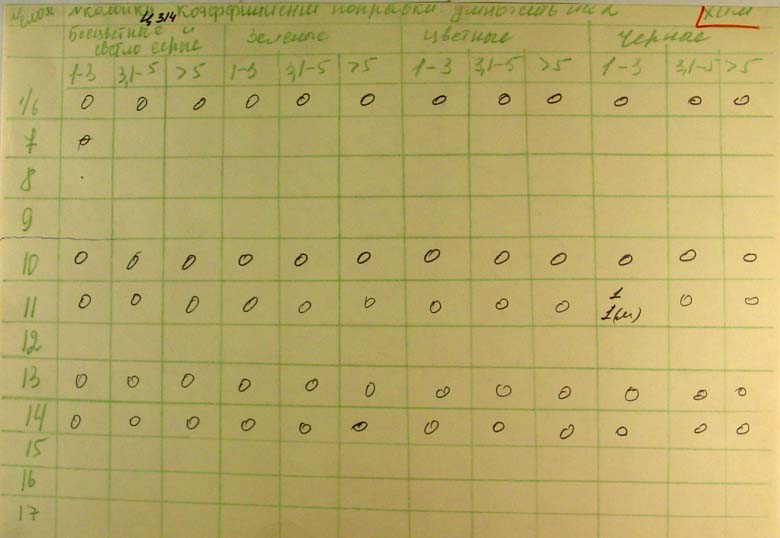 № слоя № колонки Ц 314 Коэффициент поправки умножать на 2 ХИМ
Бесцветные и светло серые Зеленые Цветные Черные
1-3 3,1-5 >5 1-3 3,1-5 >5 1-3 3,1-5 >5 1-3 3,1-5 >5
1/6 0 0 0 0 0 0 0 0 0 0 0 0
7 0
8
9
10 0 0 0 0 0 0 0 0 0 0 0 0
11 0 0 0 0 0 0 0 0 0 1 0 0
12
13 0 0 0 0 0 0 0 0 0 0 0 0
14 0 0 0 0 0 0 0 0 0 0 0 0
15
16
17